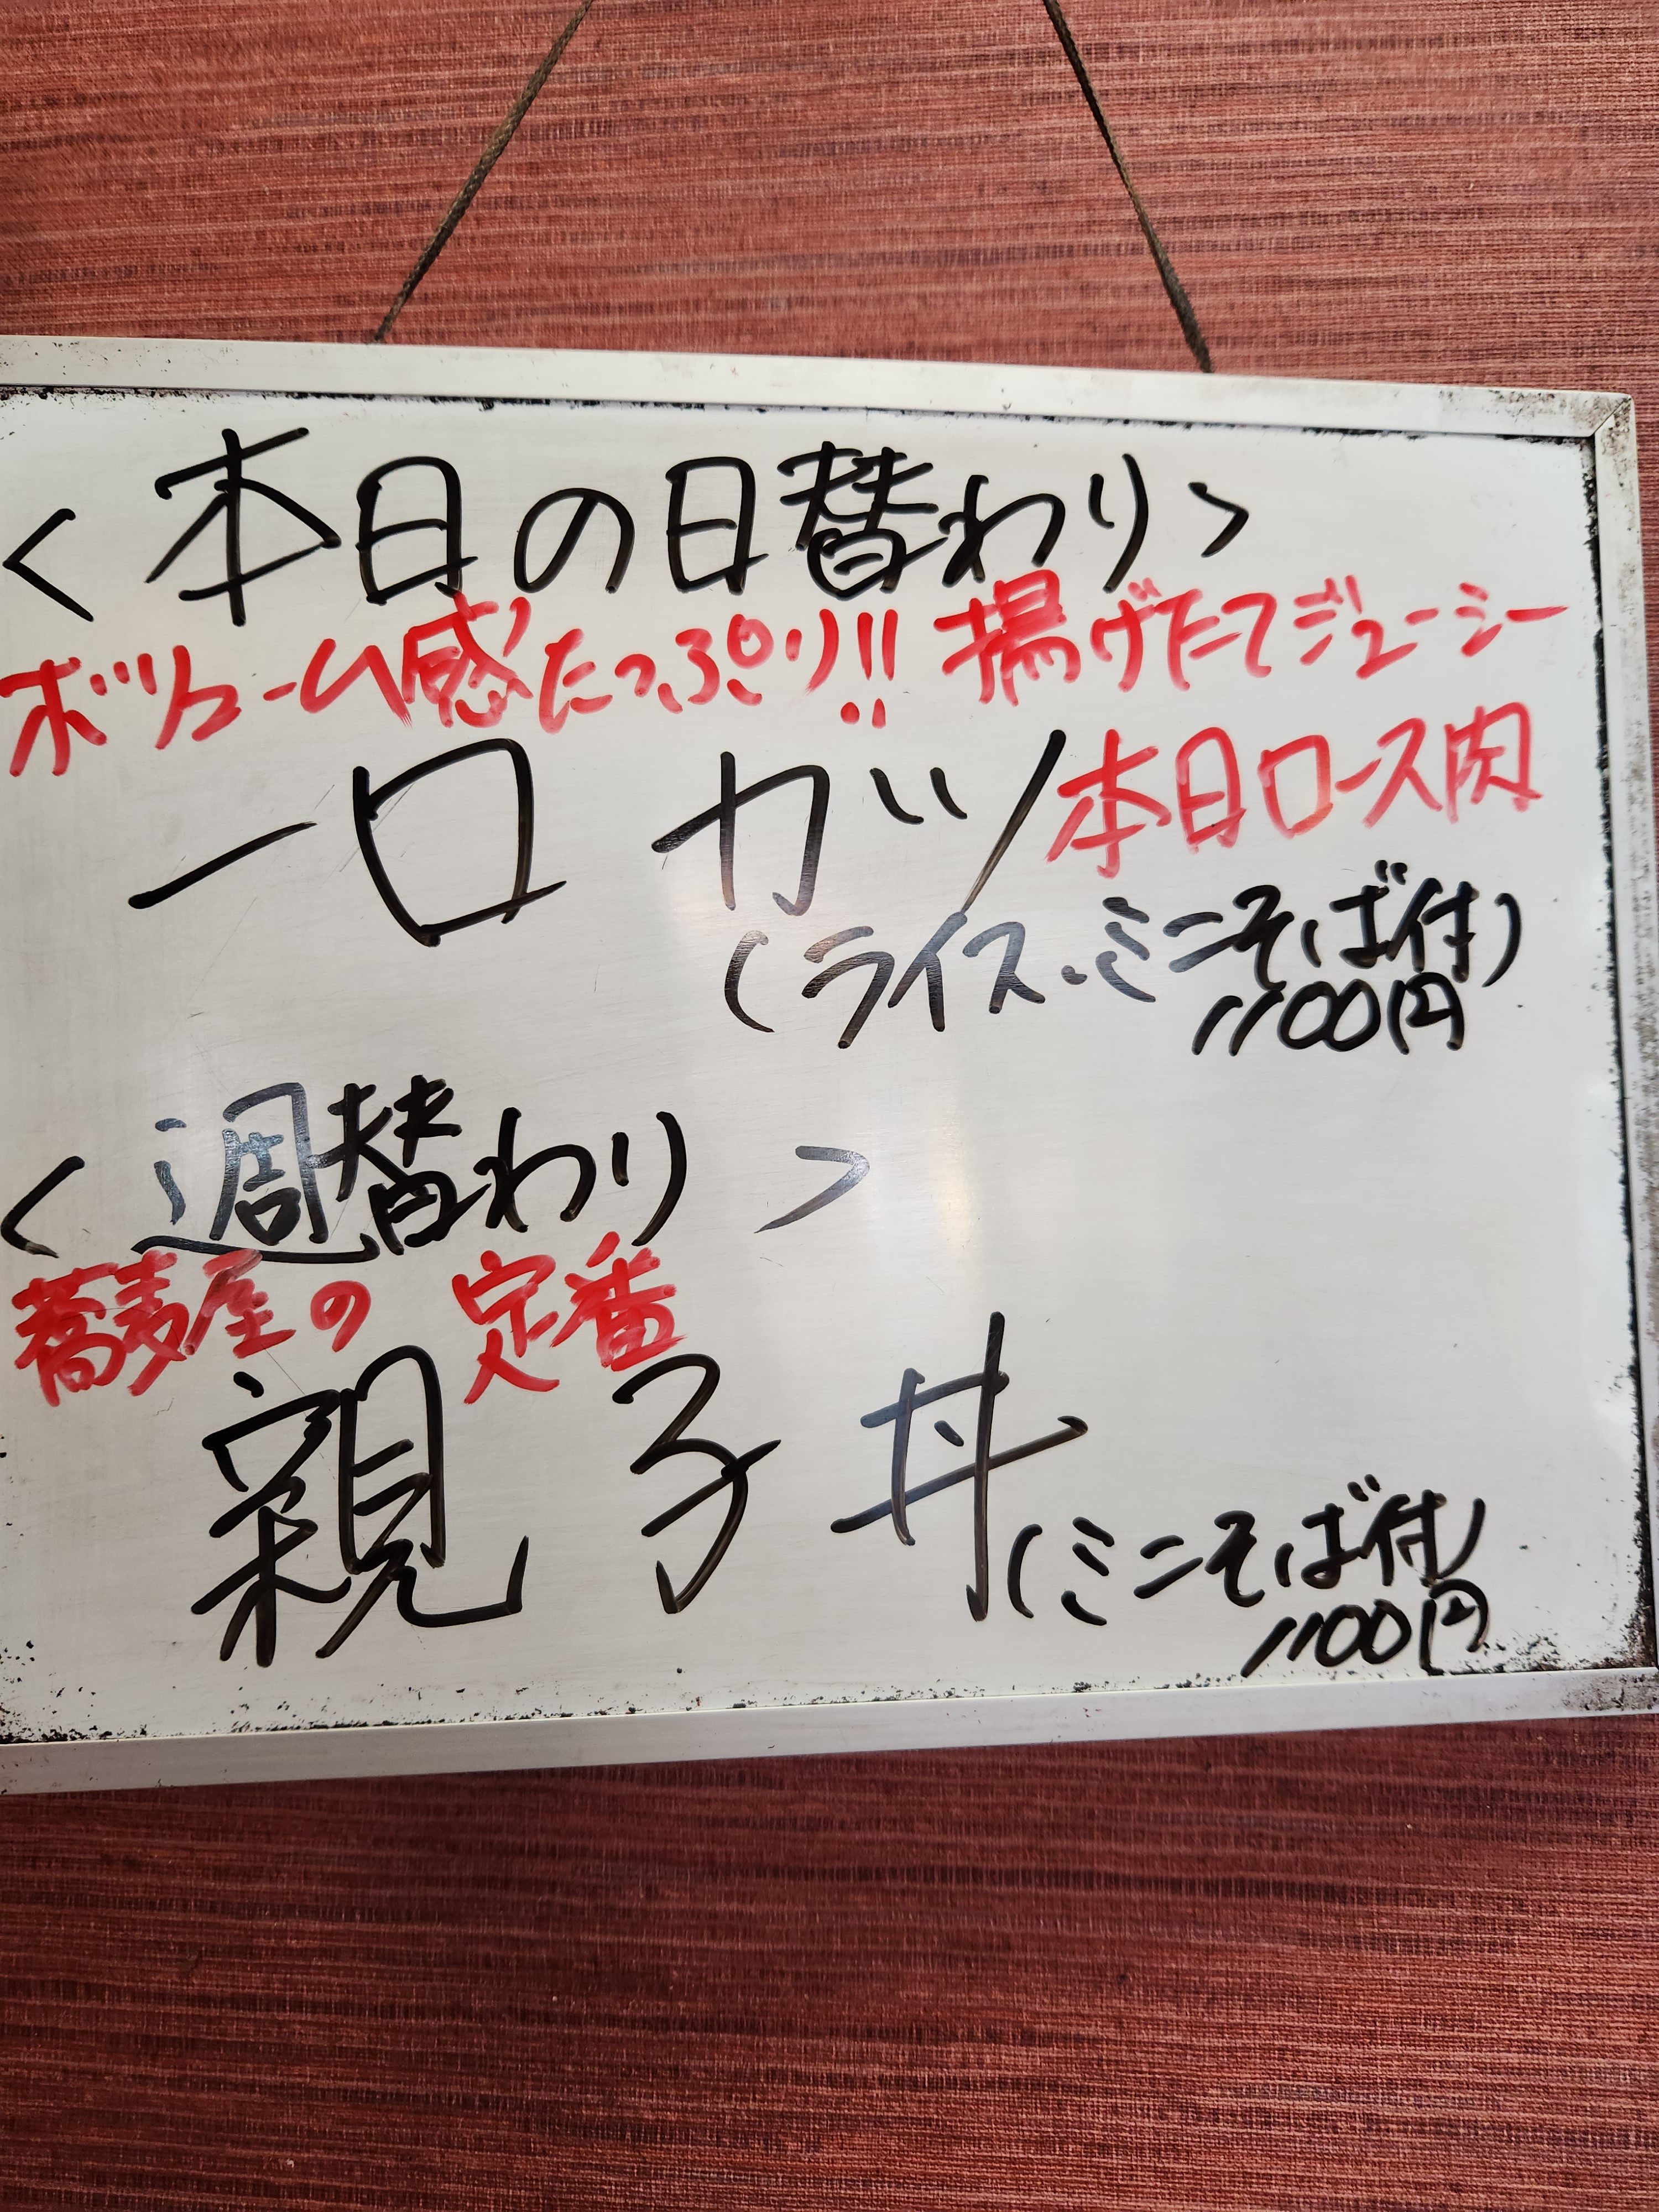 <本日の日替わり>
ボリューム感たっぷり!! 揚げたてジューシー
一口カツ 本日ロース肉
(ライス・ミニそば付)
1100円
<週替わり>
蕎麦屋の 定番
親子丼 (ミニそば付)
1100円